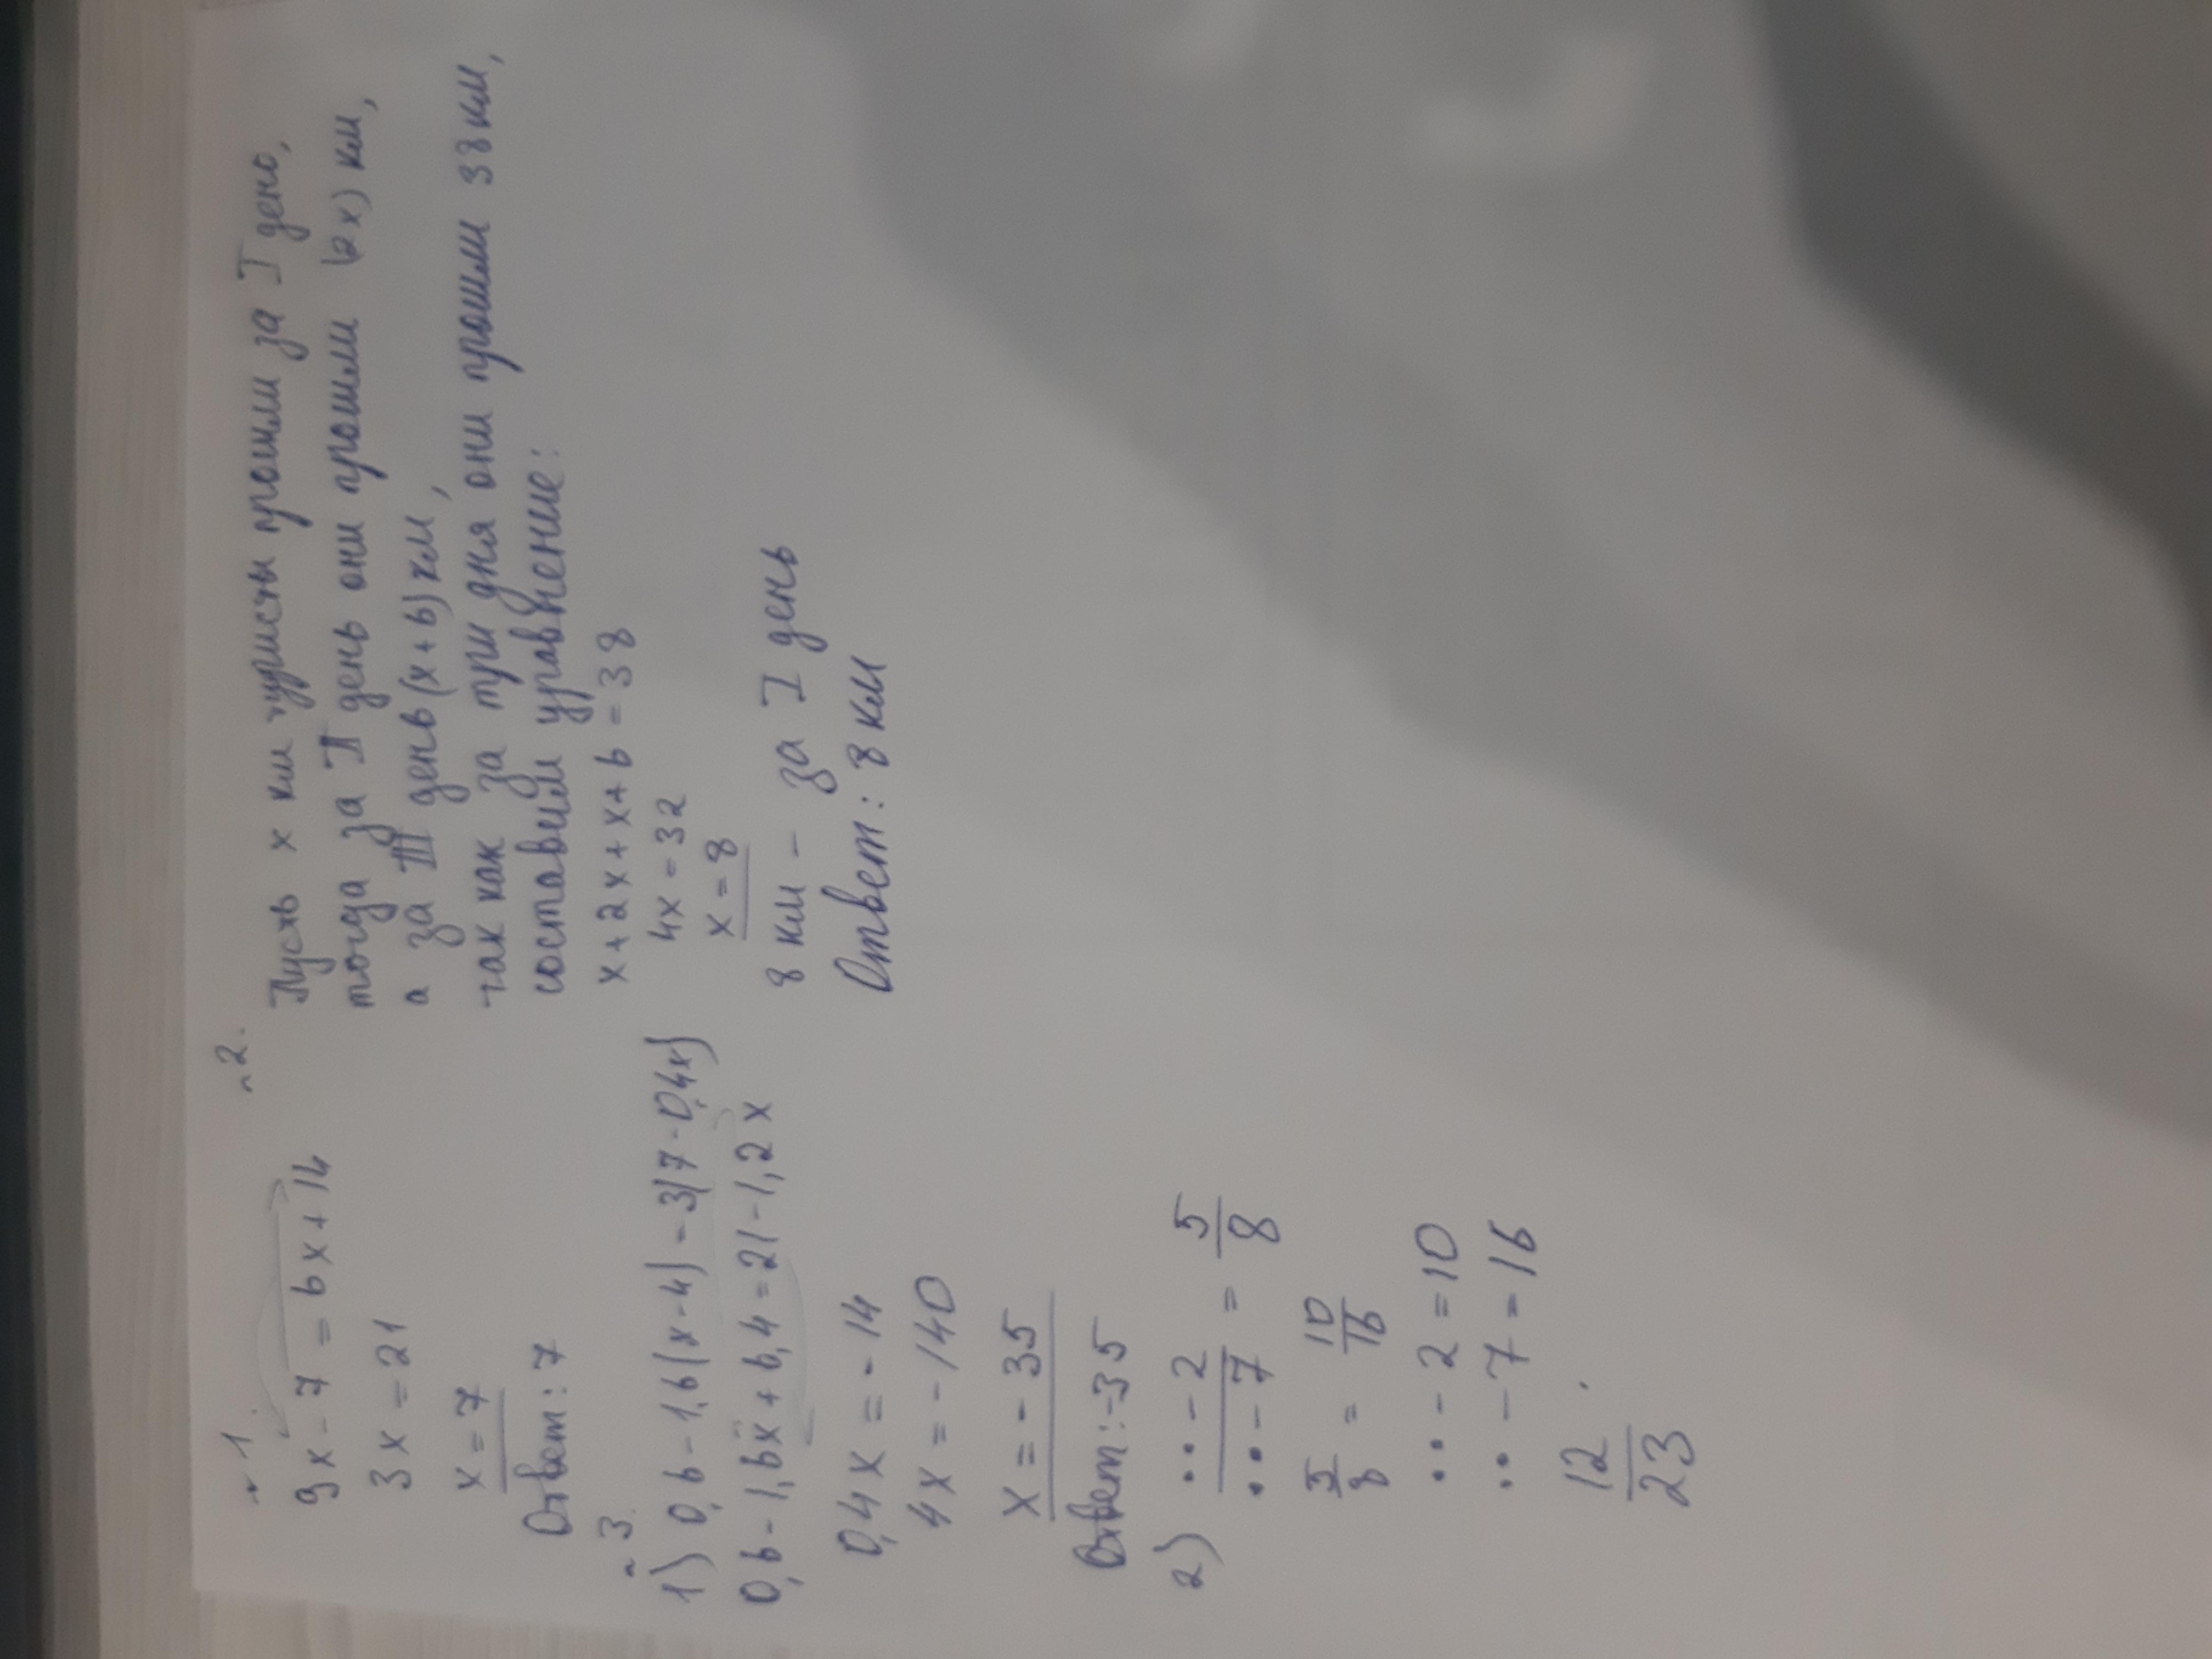 №1.
9x - 7 = 6x + 14
3x = 21
x = 7
Ответ: 7
№2.
Пусть x км туристы прошли за I день,
тогда за II день они прошли (2x) км,
а за III день (x+6) км,
так как за три дня они прошли 38 км,
составим уравнение:
x + 2x + x + 6 = 38
4x = 32
x = 8
8 км - за I день
Ответ: 8 км
№3.
1) 0,6 - 1,6(x-4) = 3(7-0,4x)
0,6 - 1,6x + 6,4 = 21 - 1,2x
0,4x = -14
4x = -140
x = -35
Ответ: -35
2) •• - 2 / •• - 7 = 5/8
5/8 = 10/16
•• - 2 = 10
•• - 7 = 16
12/23